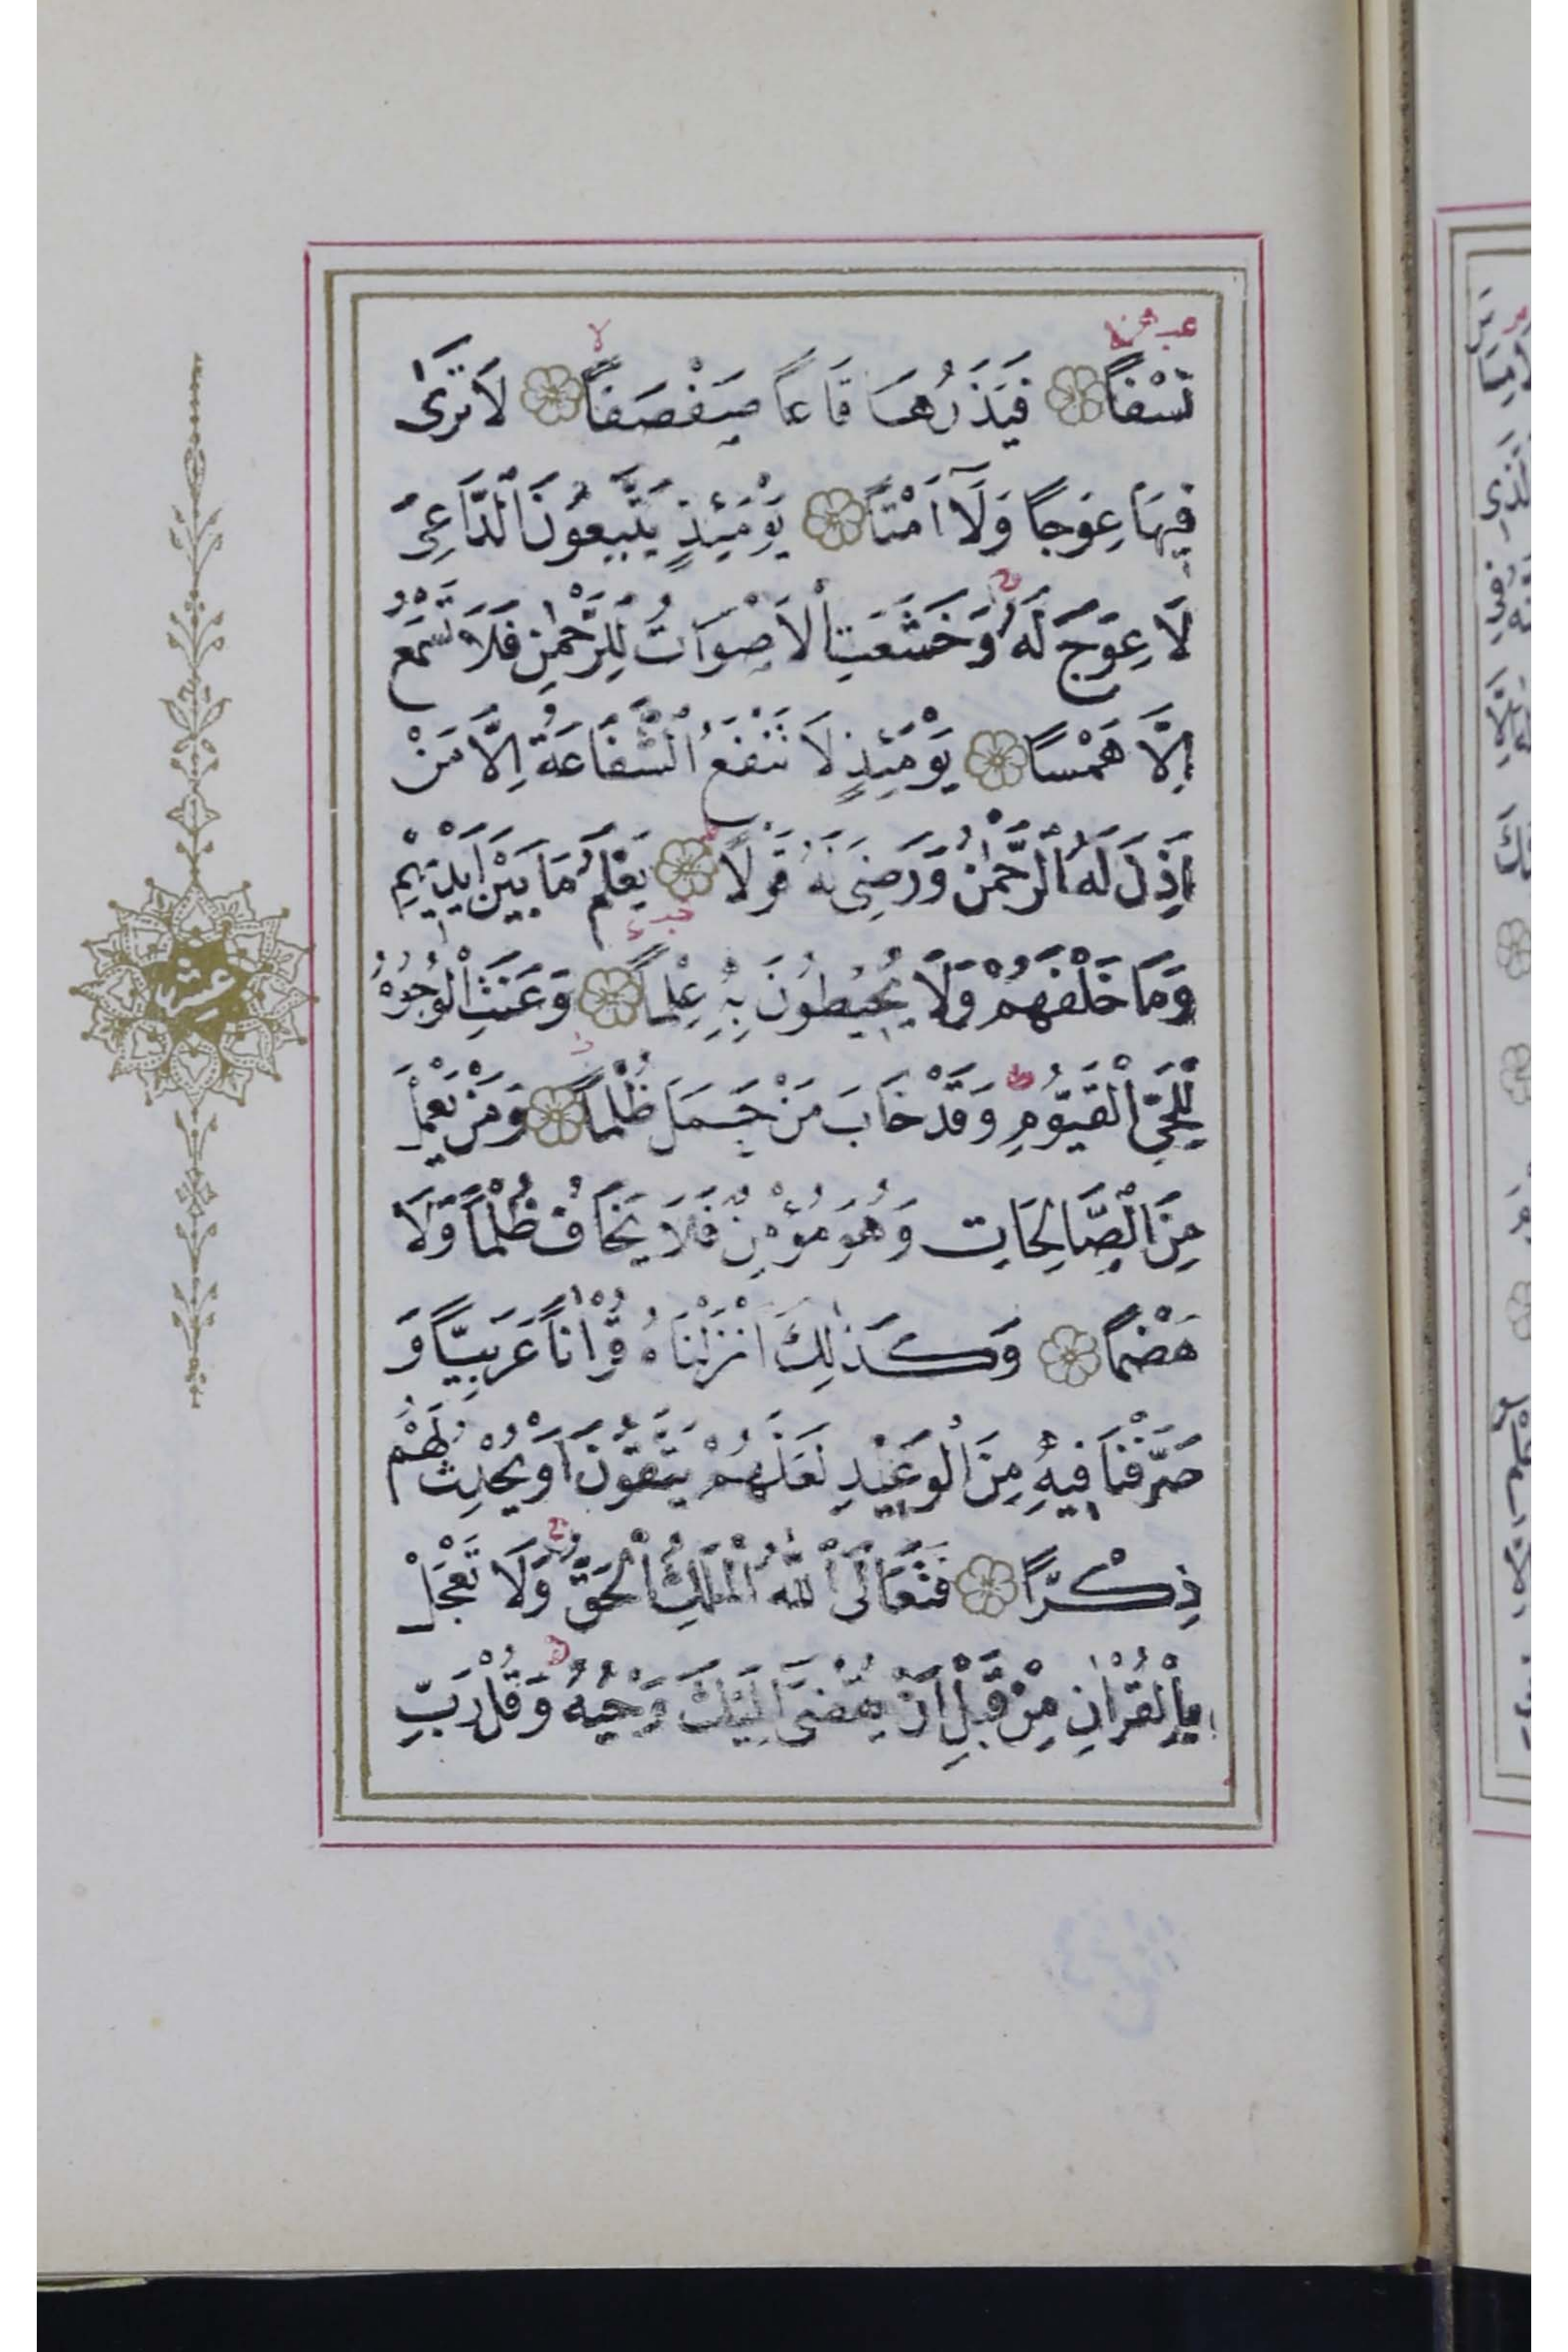 نَسْفًا فَيَذَرُهَا قَاعًا صَفْصَفًا لَا تَرٰى
فِيهَا عِوَجًا وَلَآ اَمْتًا يَوْمَئِذٍ يَتَّبِعُونَ الدَّاعِىَ
لَا عِوَجَ لَهُ وَخَشَعَتِ الْاَصْوَاتُ لِلرَّحْمٰنِ فَلَا تَسْمَعُ
اِلَّا هَمْسًا يَوْمَئِذٍ لَا تَنْفَعُ الشَّفَاعَةُ اِلَّا مَنْ
اَذِنَ لَهُ الرَّحْمٰنُ وَرَضِىَ لَهُ قَوْلًا يَعْلَمُ مَا بَيْنَ اَيْدِيهِمْ
وَمَا خَلْفَهُمْ وَلَا يُحِيطُونَ بِهِ عِلْمًا وَعَنَتِ الْوُجُوهُ
لِلْحَىِّ الْقَيُّومِ وَقَدْ خَابَ مَنْ حَمَلَ ظُلْمًا وَمَنْ يَعْمَلْ
مِنَ الصَّالِحَاتِ وَهُوَ مُؤْمِنٌ فَلَا يَخَافُ ظُلْمًا وَلَا
هَضْمًا وَكَذٰلِكَ اَنْزَلْنَاهُ قُرْاٰنًا عَرَبِيًّا وَ
صَرَّفْنَا فِيهِ مِنَ الْوَعِيدِ لَعَلَّهُمْ يَتَّقُونَ اَوْ يُحْدِثُ لَهُمْ
ذِكْرًا فَتَعَالَى اللّٰهُ الْمَلِكُ الْحَقُّ وَلَا تَعْجَلْ
بِالْقُرْاٰنِ مِنْ قَبْلِ اَنْ يُقْضٰى اِلَيْكَ وَحْيُهُ وَقُلْ رَبِّ